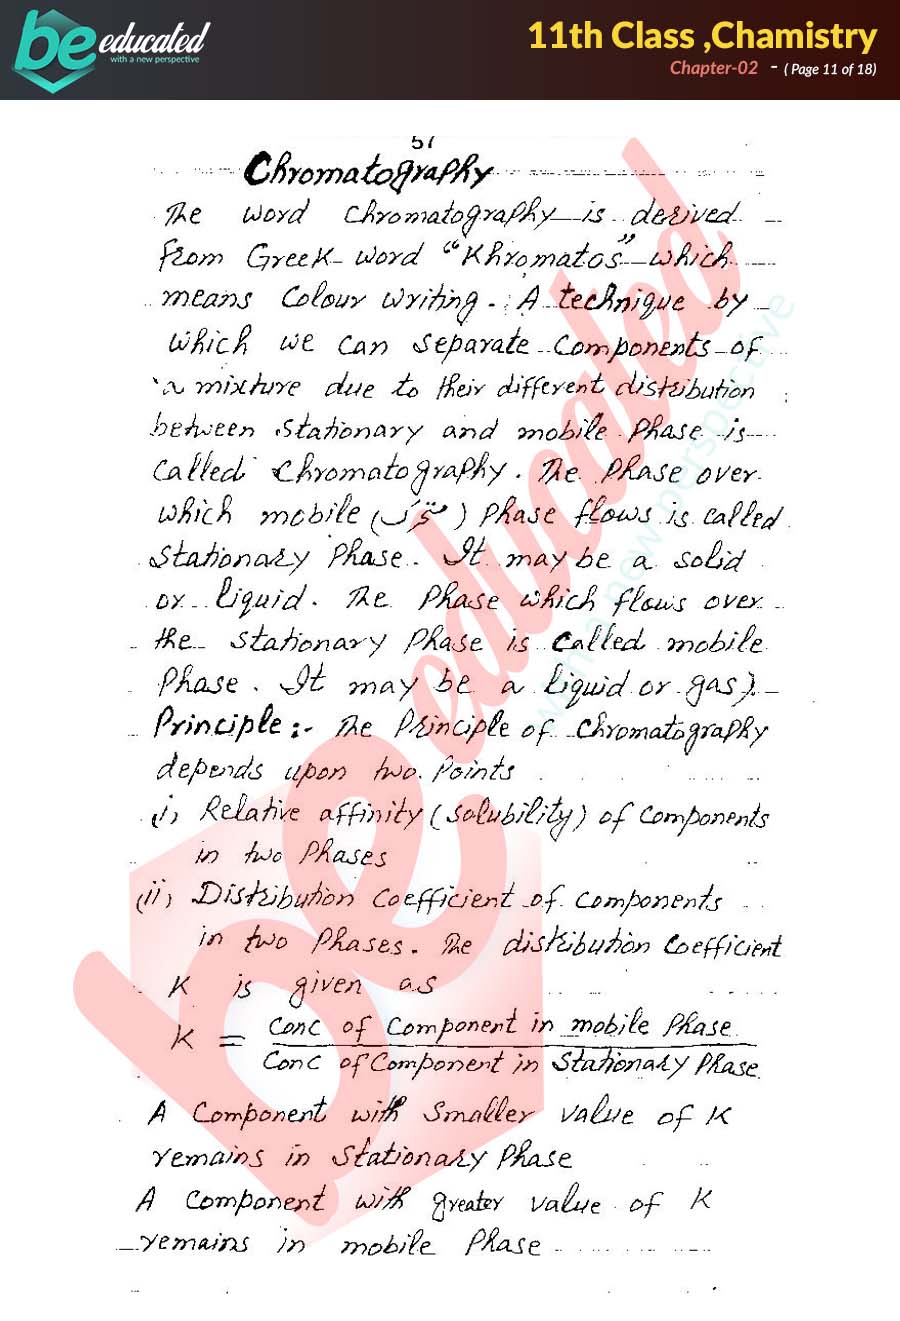 be educated
with a new perspective
11th Class ,Chamistry
Chapter-02 - ( Page 11 of 18)
57
Chromatography
The word chromatography is derived
from Greek word "Khromatos" which
means Colour writing. A technique by
which we can separate components of
a mixture due to their different distribution
between stationary and mobile phase is
called chromatography. The phase over
which mobile (متحرک) phase flows is called
stationary phase. It may be a solid
or liquid. The phase which flows over
the stationary phase is called mobile
phase. It may be a liquid or gas).
Principle:- The Principle of chromatography
depends upon two points
i) Relative affinity (solubility) of components
in two phases
(ii) Distribution coefficient of components
in two phases. The distribution coefficient
K is given as
K = Conc of component in mobile phase
Conc of component in stationary phase
A component with smaller value of K
remains in stationary phase
A component with greater value of K
remains in mobile phase
be educated
with a new perspective